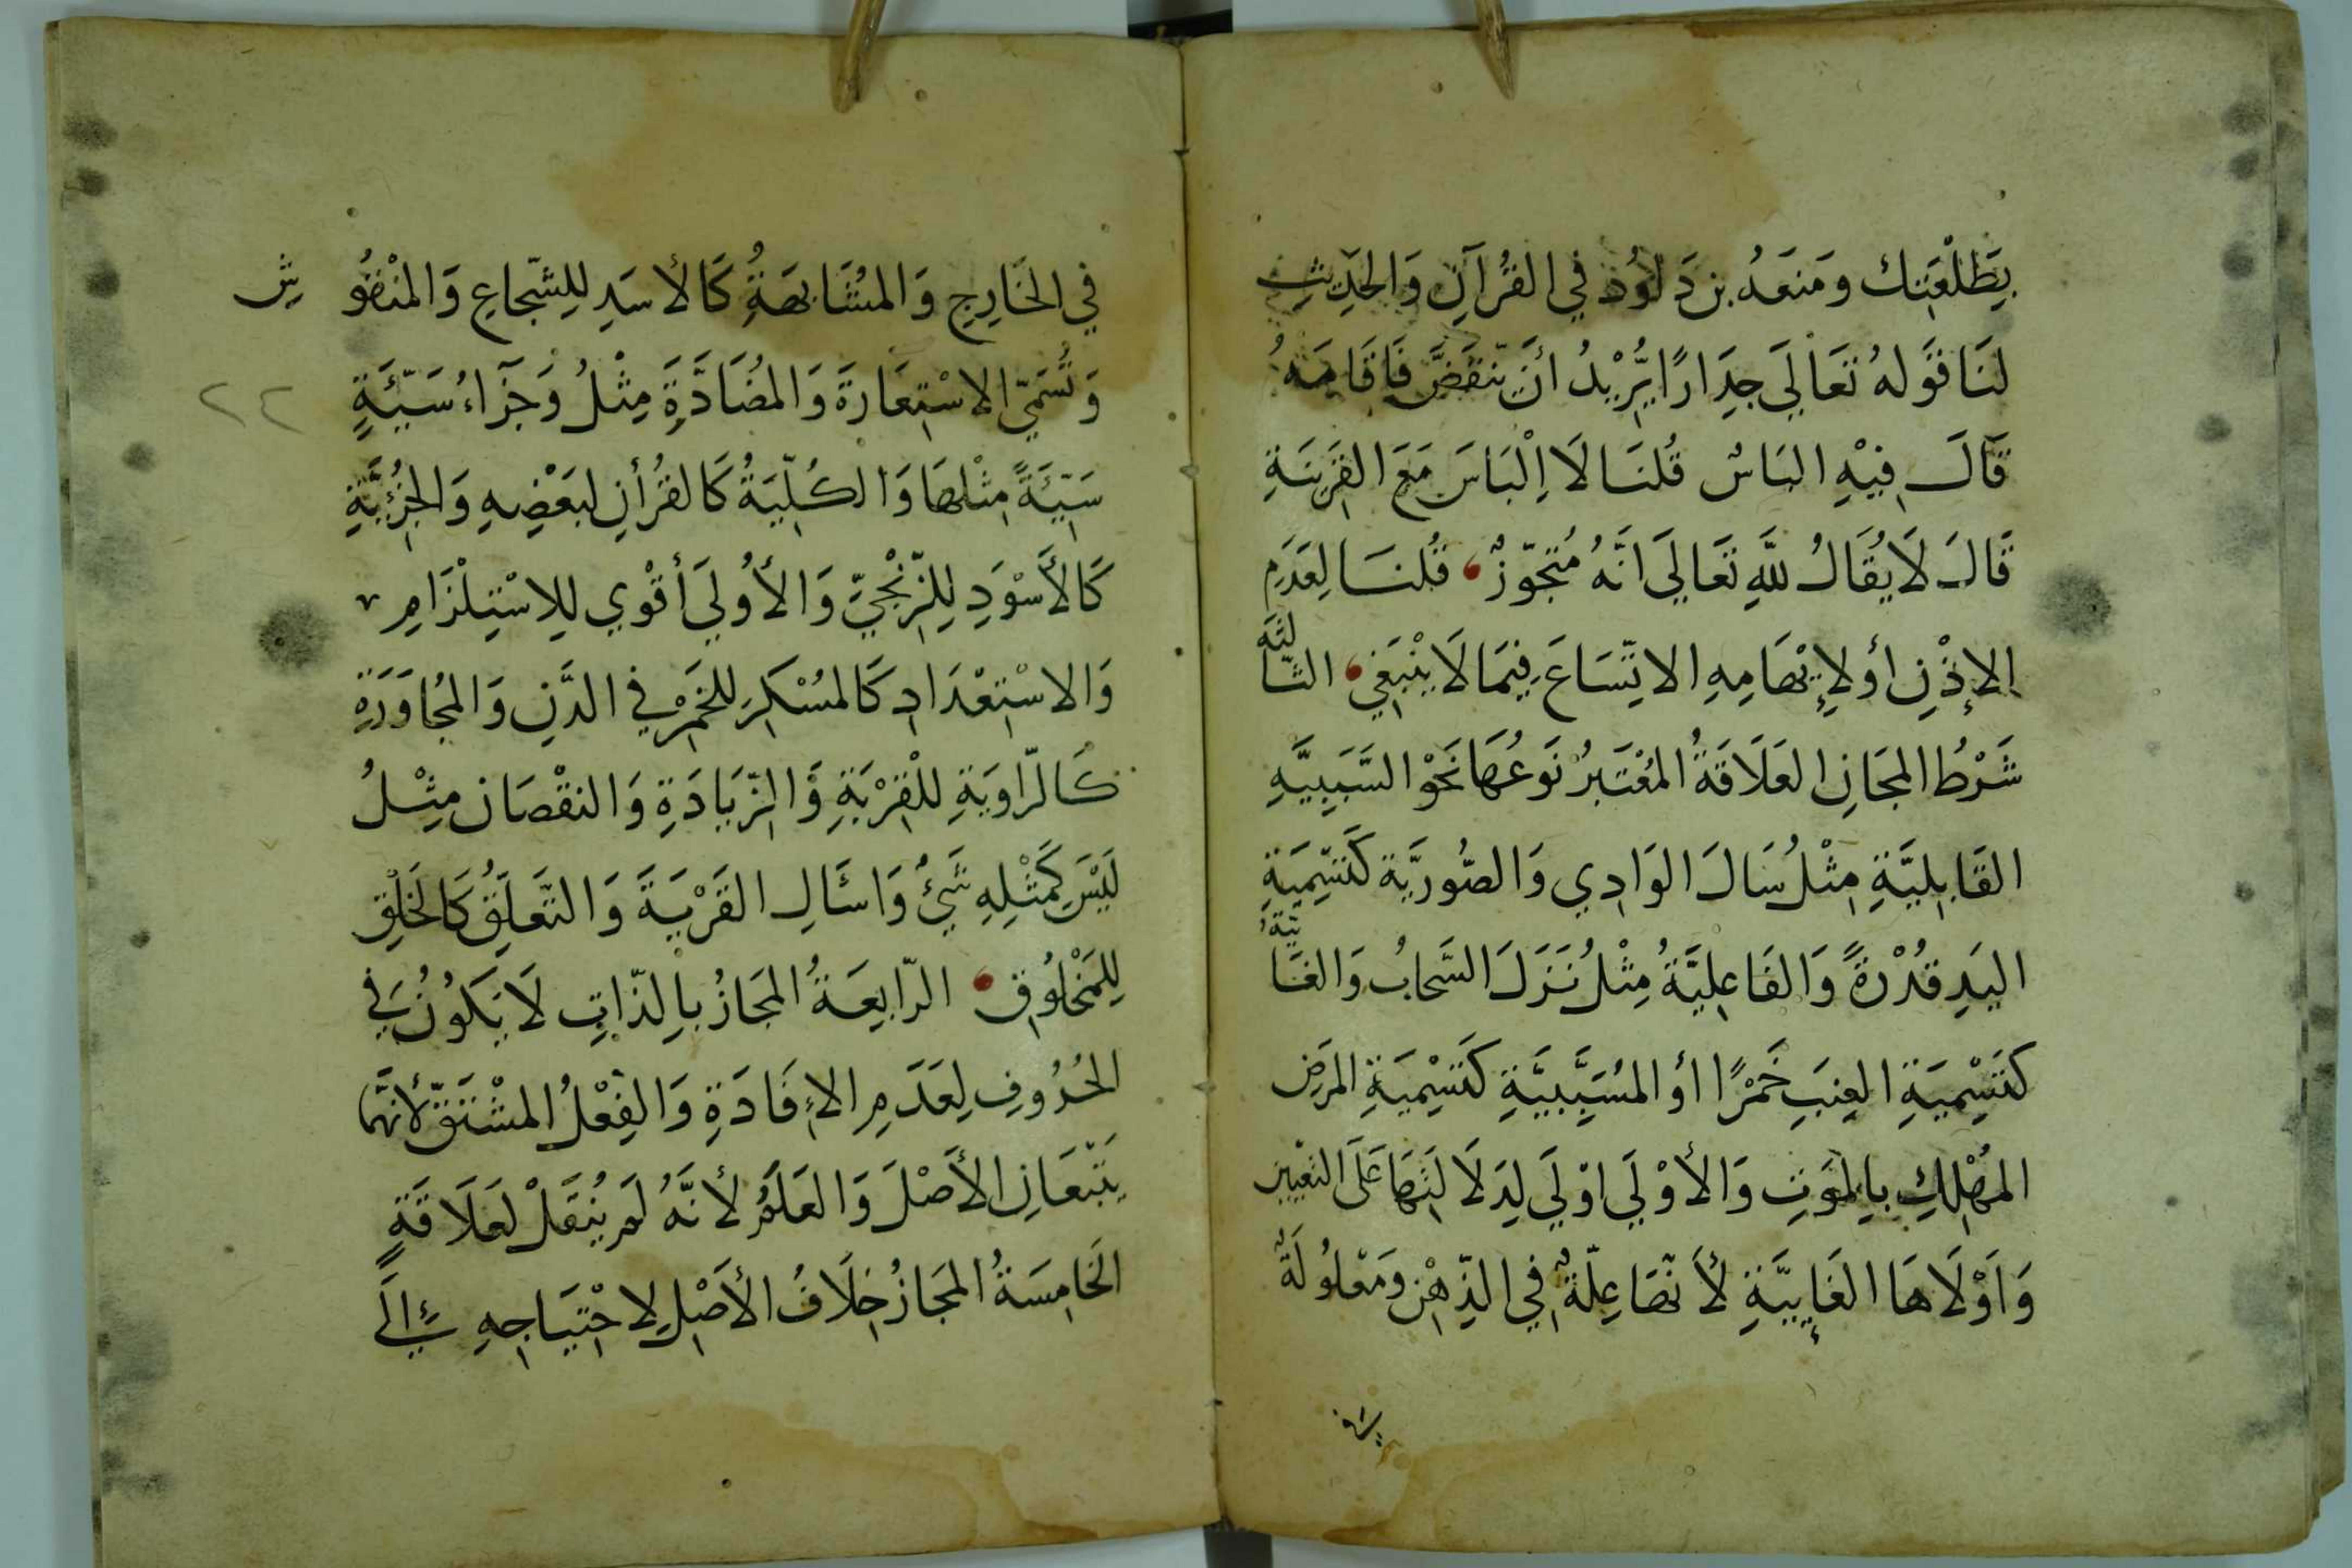 بِطَلْعَتِك ومَنعَهُ بن دَاوُد في القُرآنِ وَالحَدِيثِ
لنَا قَوله تَعَالَي جِدَارًا يُّرِيْدُ أنْ يّنقَضَّ فَاقَامَهُ
قَالَ فِيْهِ البَاسٌ قُلنَا لَا اِلْبَاسَ مَعَ القَرِينَةِ
قَالَ لَا يُقَالُ للهِ تَعَالَي انَّهُ مُتَجَوّزٌ قُلنَا لِعَدَمِ
الإذْنِ أولإيْهَامِهِ الاتِّسَاعَ فِيمَا لَا يَنْبَغِي الثَّالثَة
شَرْطُ المجَازِ العَلَاقَةُ المعْتَبرُ نَوعُهَا نَحْو السَّبَبِيَّةِ
القَابِلِيَّةِ مِثْلُ سَالَ الوَادِي وَالصُّورِيَّة كَتَسْمِيَةِ
اليَدِ قُدْرَةً وَالفَاعِلِيَّةُ مِثْلُ نَزَلَ السَّحابُ وَالغَائيّةُ
كتَسْمِيَةِ العِنَبِ خَمْرًا أو المسَبَّبِيَّةِ كَتَسْمِيَةِ المرَضِ
المهْلِكِ بِالموَتِ وَالأوْلَي اوْلَي لِدَلَالَتِهَا عَلَى التعْيِين
وَاَوْلَاهَا الغَايِيَّةِ لأنَّهَا عِلّةٌ في الذِّهْنِ ومَعْلُولَةٌ
في الخَارِجِ وَالمشَابهَةُ كَالأسَدِ لِلشّجاعِ وَالمنْقُوشِ
وَتُسَمّيَ الاسْتِعَارَةَ وَالمضَادَّةِ مِثْلُ وَجَزَآءُ سَيّئَةٍ
سَيّئَةً مِثْلهَا وَالكُلِّيَةُ كَالقُرأنِ لبَعْضِهِ وَالجُزْئِيَّةِ
كَالأَسْوَدِ لِلزّنْجِيّ وَالأُولَي أقْوي لِلاسْتِلْزَامِ
وَالاسْتِعْدَادِ كَالمسْكِرِ للخَمْرِ في الدَّنِ وَالمجَاوَرَةِ
كَالرّاوِيَةِ للْقِرْبَةِ وَالزّيَادَةِ وَالنقْصَان مِثْلُ
لَيْسَ كَمثْلِهِ شَيْءٌ وَاسْأَلِ القَرْيَةَ وَالتَّعَلقُ كَالخَلْقِ
لِلمَخْلُوقِ الرّابِعَةُ المجَازُ بالِذّاتِ لَا يَكُونُ في
الحُرُوفِ لِعَدَمِ الاِفَادَةِ وَالفِعْلُ المشْتَقّ لأنَّهمَا
يَتْبَعَانِ الأَصْلَ وَالعَلَمُ لأنَّهُ لَم يُنقَلْ لعَلَاقَةٍ
الخَامِسَةُ المجَازُ خِلَافُ الأصْلِ لِاحْتِيَاجِهِ إلَى
٢٢